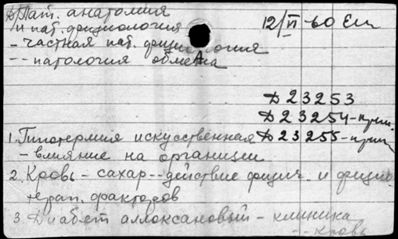 Пат. анатомия
и пат. физиология
- частная пат. физиология
-- патология обмена
12/VI-60
Д 23253
Д 23254-крат.
1. Гипотермия искусственная Д 23255-крат
- влияние на организм
2. Кровь - сахар -- действие физич. и физио
терап. факторов
3. Диабет аллоксановый - клиника
-- кровь